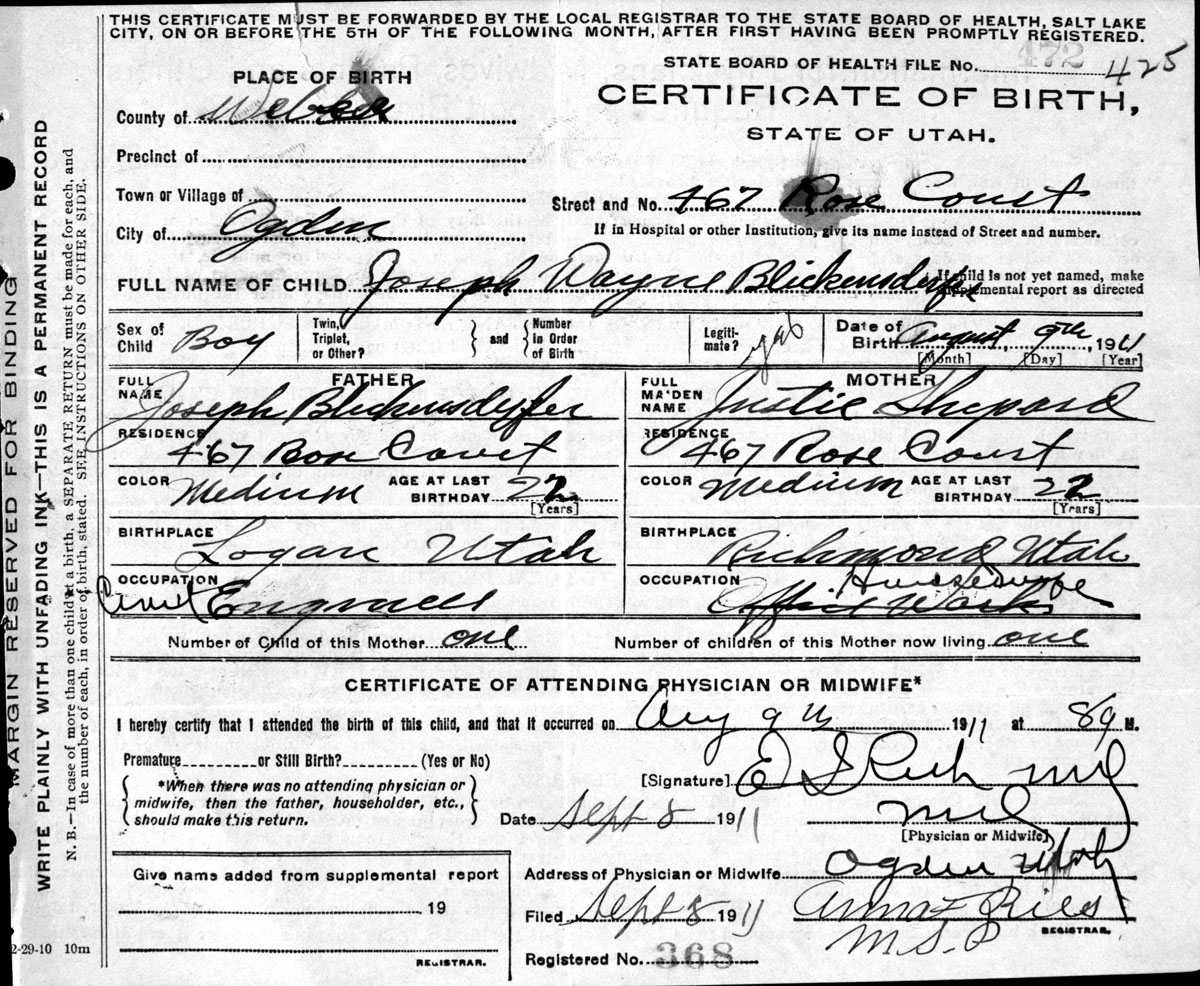 THIS CERTIFICATE MUST BE FORWARDED BY THE LOCAL REGISTRAR TO THE STATE BOARD OF HEALTH, SALT LAKE
CITY, ON OR BEFORE THE 5TH OF THE FOLLOWING MONTH, AFTER FIRST HAVING BEEN PROMPTLY REGISTERED.
MARGIN RESERVED FOR BINDING
WRITE PLAINLY WITH UNFADING INK—THIS IS A PERMANENT RECORD
N. B.—In case of more than one child at a birth, a SEPARATE RETURN must be made for each, and
the number of each, in order of birth, stated. SEE INSTRUCTIONS ON OTHER SIDE.
PLACE OF BIRTH
County of Weber
Precinct of
Town or Village of
City of Ogden
472
STATE BOARD OF HEALTH FILE No. 425
CERTIFICATE OF BIRTH,
STATE OF UTAH.
Street and No. 467 Rose Court
If in Hospital or other Institution, give its name instead of Street and number.
FULL NAME OF CHILD Joseph Wayne Blickensderfer
If child is not yet named, make
supplemental report as directed
Sex of Child Boy
Twin, Triplet, or Other?
and
Number in Order of Birth
Legiti-mate?
Date of Birth August 9th, 1911
[Month] [Day] [Year]
FATHER
FULL NAME Joseph Blickensdyfer
RESIDENCE 467 Rose Court
COLOR Medium AGE AT LAST BIRTHDAY 22
[Years]
BIRTHPLACE Logan Utah
OCCUPATION
MOTHER
FULL MAIDEN NAME Justie Shepard
RESIDENCE 467 Rose Court
COLOR Medium AGE AT LAST BIRTHDAY 22
[Years]
BIRTHPLACE Richmond Utah
OCCUPATION Housewife
Office Work
Number of Child of this Mother one
Number of children of this Mother now living one
CERTIFICATE OF ATTENDING PHYSICIAN OR MIDWIFE*
I hereby certify that I attended the birth of this child, and that it occurred on Aug 9th 1911 at 8 M.
Premature or Still Birth? (Yes or No)
*When there was no attending physician or
midwife, then the father, householder, etc.,
should make this return.
[Signature] E S Rich MD
Date Sept 8 1911
MD
[Physician or Midwife]
Give name added from supplemental report
19
REGISTRAR.
Address of Physician or Midwife Ogden Utah
Filed Sept 8 1911
REGISTRAR.
Registered No. 368
2-29-10 10m